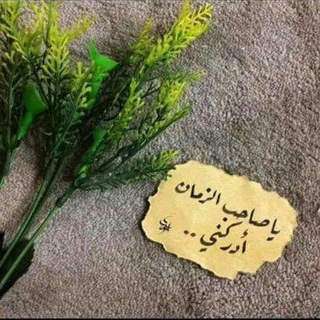 يا صاحب الزمان
أدركني ..